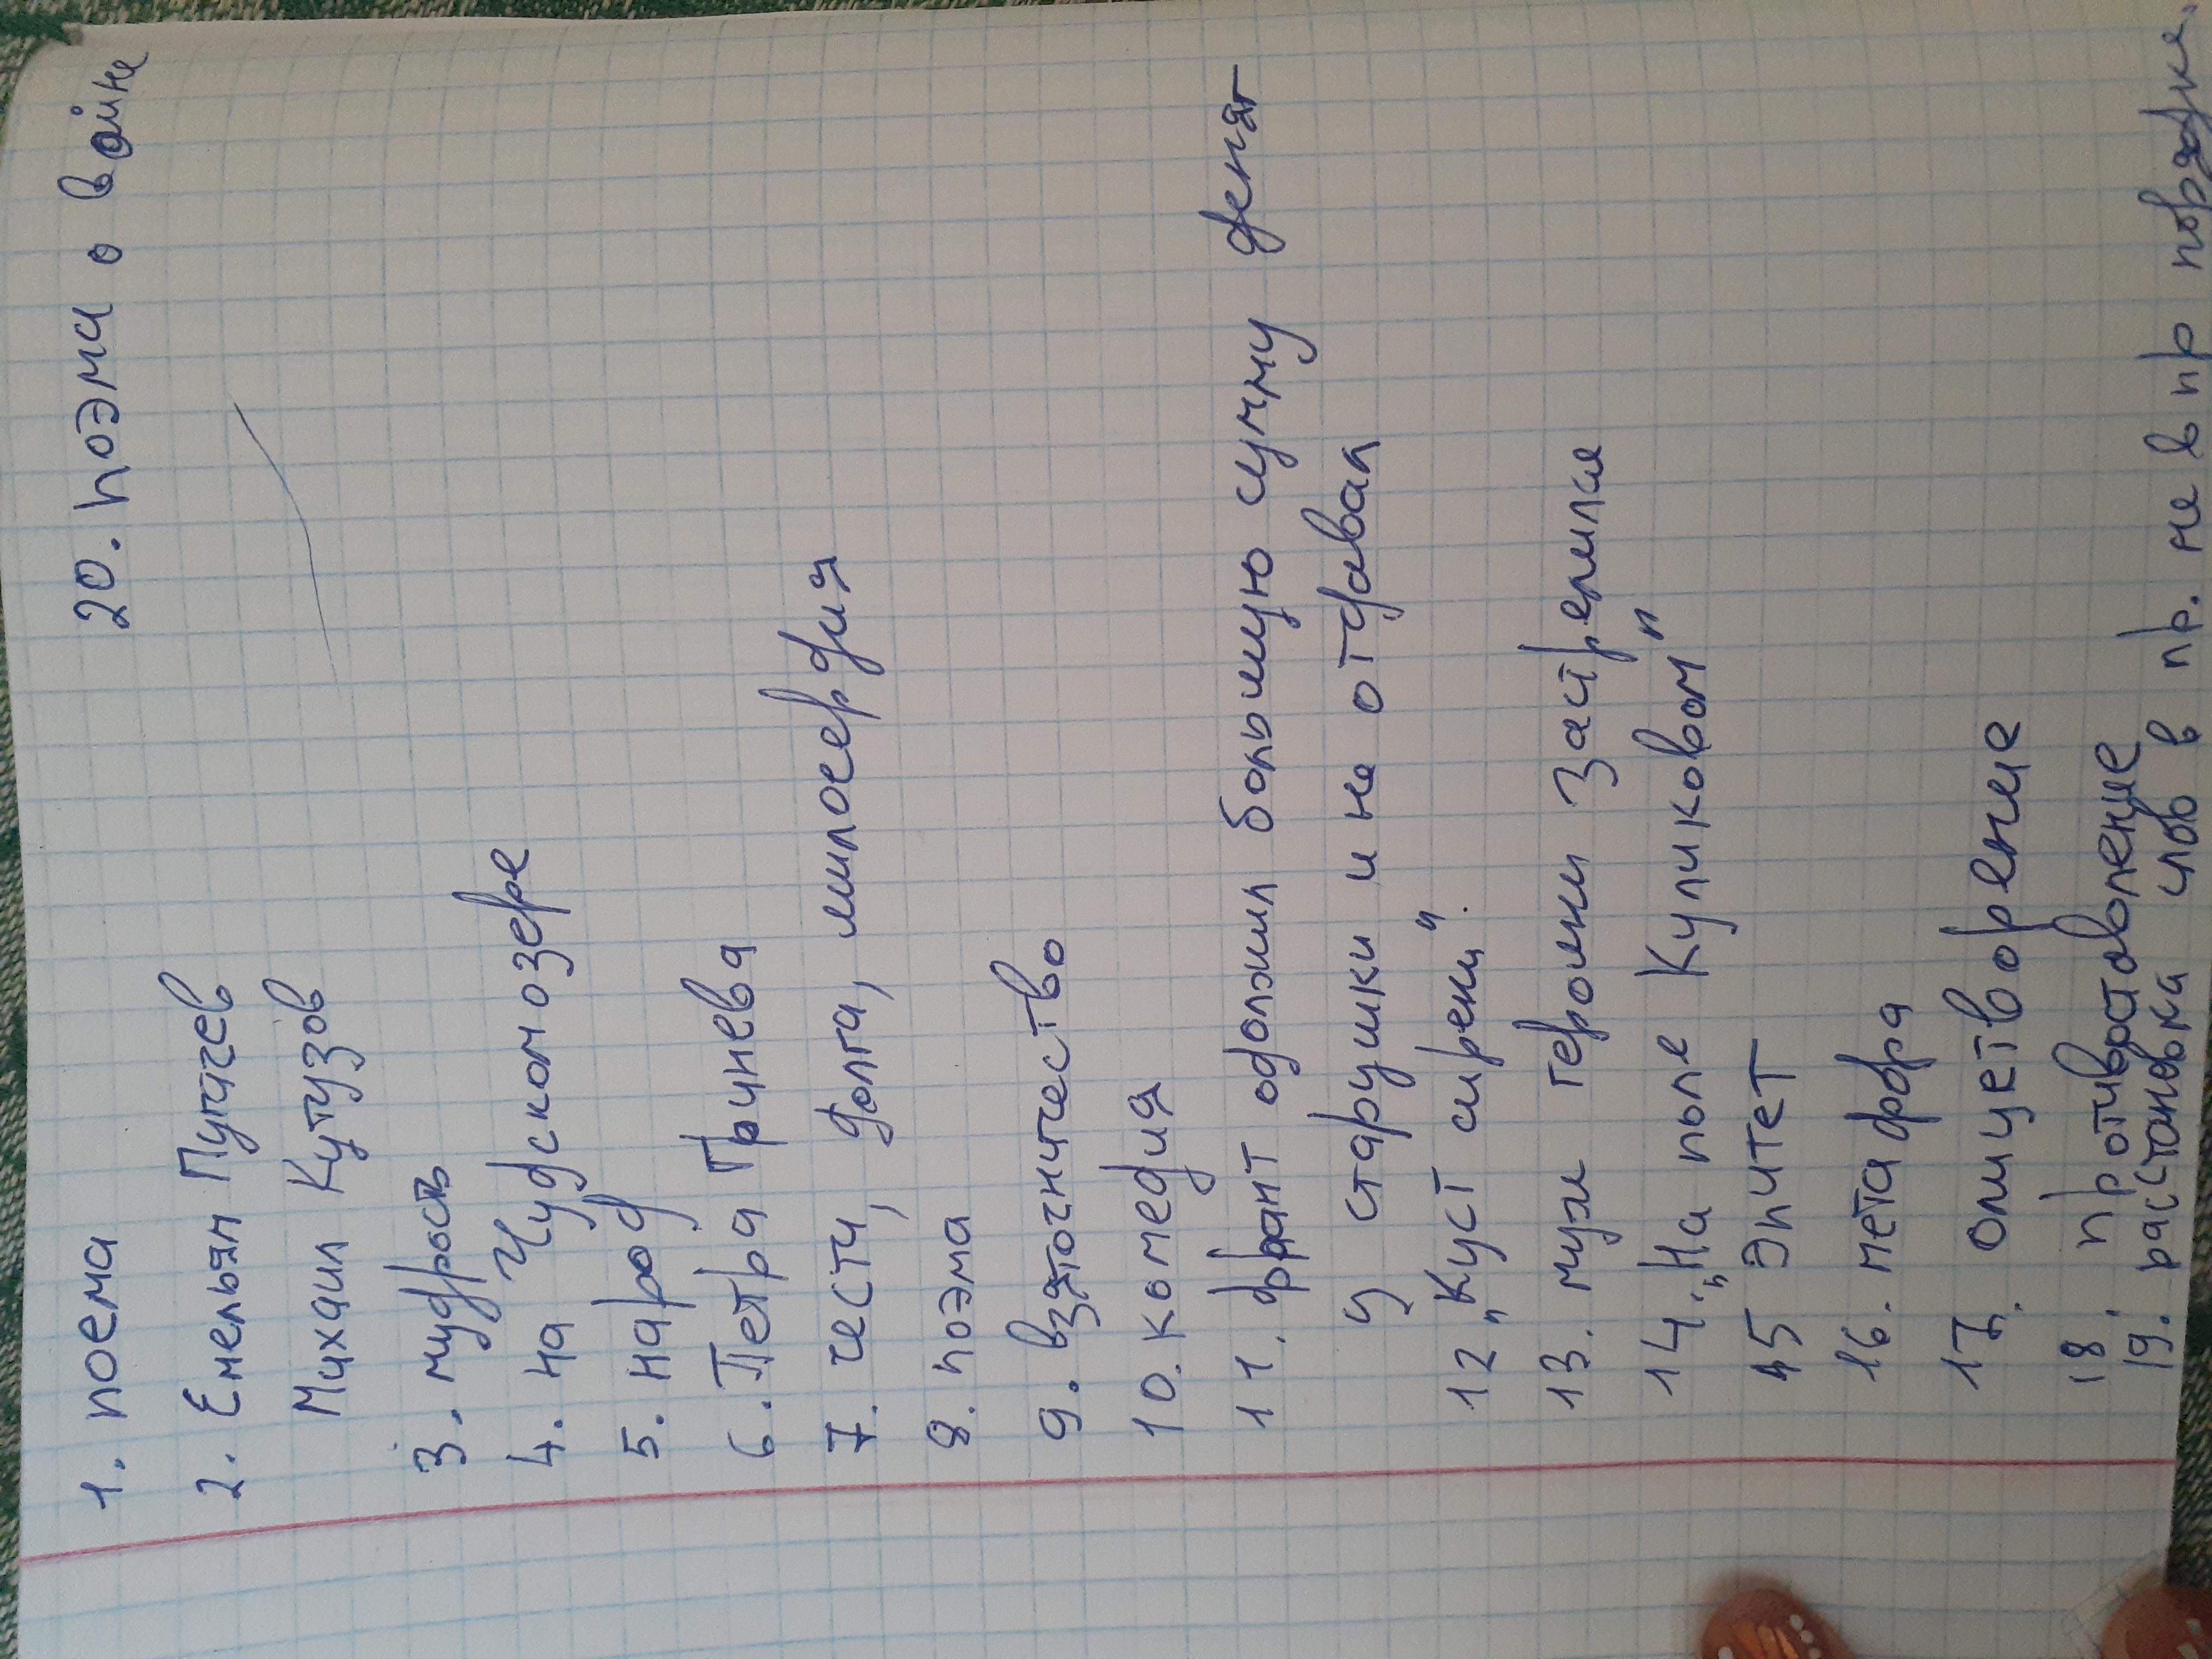 1. поема
2. Емельян Пугачев
Михаил Кутузов
3. мудрость
4. на Чудском озере
5. народ
6. Петра Гринева
7. чести, долга, милосердия
8. поэма
9. взяточничество
10. комедия
11. франт одолжил большую сумму денят
у старушки и не отдавал
12 „Куст сирени".
13. муж героини застрелился
14. „На поле Куликовом"
15 Эпитет
16. метафора
17. олицетворение
18. противоставление
19. расстановка слов в пр. не в пр порядке.
20. поэма о войне